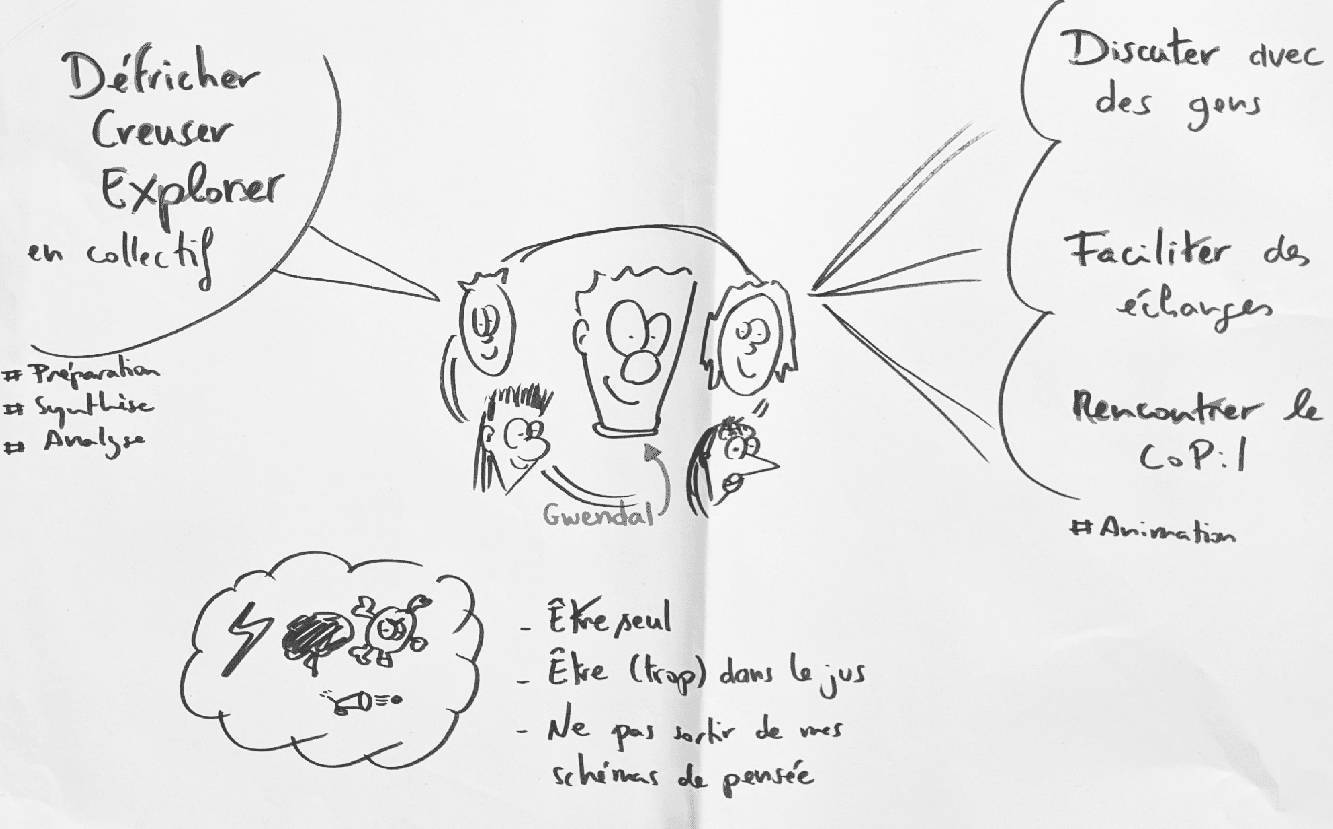 Défricher
Creuser
Explorer
en collectif
# Préparation
# Synthèse
# Analyse
Discuter avec
des gens
Faciliter des
échanges
Rencontrer le
CoPil
# Animation
Gwendal
- Être seul
- Être (trop) dans le jus
- Ne pas sortir de mes
schémas de pensée